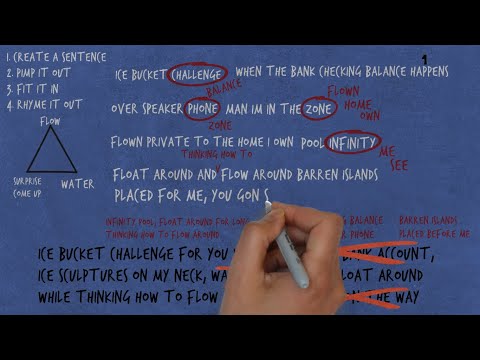 1
1. CREATE A SENTENCE
2. PIMP IT OUT
3. FIT IT IN
4. RHYME IT OUT
FLOW
SURPRISE
COME UP
WATER
ICE BUCKET CHALLENGE WHEN THE BANK CHECKING BALANCE HAPPENS
BALANCE
FLOWN
HOME
OWN
OVER SPEAKER PHONE MAN IM IN THE ZONE
ZONE
FLOWN PRIVATE TO THE HOME I OWN POOL INFINITY
THINKING HOW TO
ME
SEE
FLOAT AROUND AND FLOW AROUND BARREN ISLANDS
PLACED FOR ME, YOU GON S
INFINITY POOL, FLOAT AROUND FOR BALANCE BARREN ISLANDS
THINKING HOW TO FLOW AROUND PHONE PLACED BEFORE ME
ICE BUCKET CHALLENGE FOR YOU BANK ACCOUNT,
ICE SCULPTURES ON MY NECK, FLOAT AROUND
WHILE THINKING HOW TO FLOW ON THE WAY